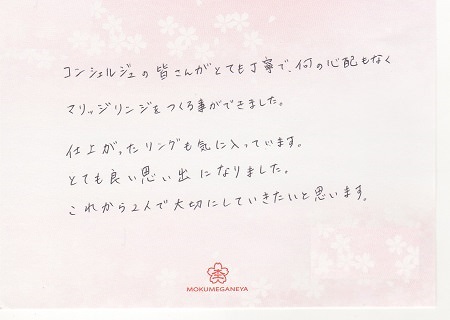 コンシェルジュの皆さんがとても丁寧で、何の心配もなく
マリッジリンジをつくる事ができました。
仕上がったリングも気に入っています。
とても良い思い出になりました。
これから2人で大切にしていきたいと思います。
MOKUMEGANEYA